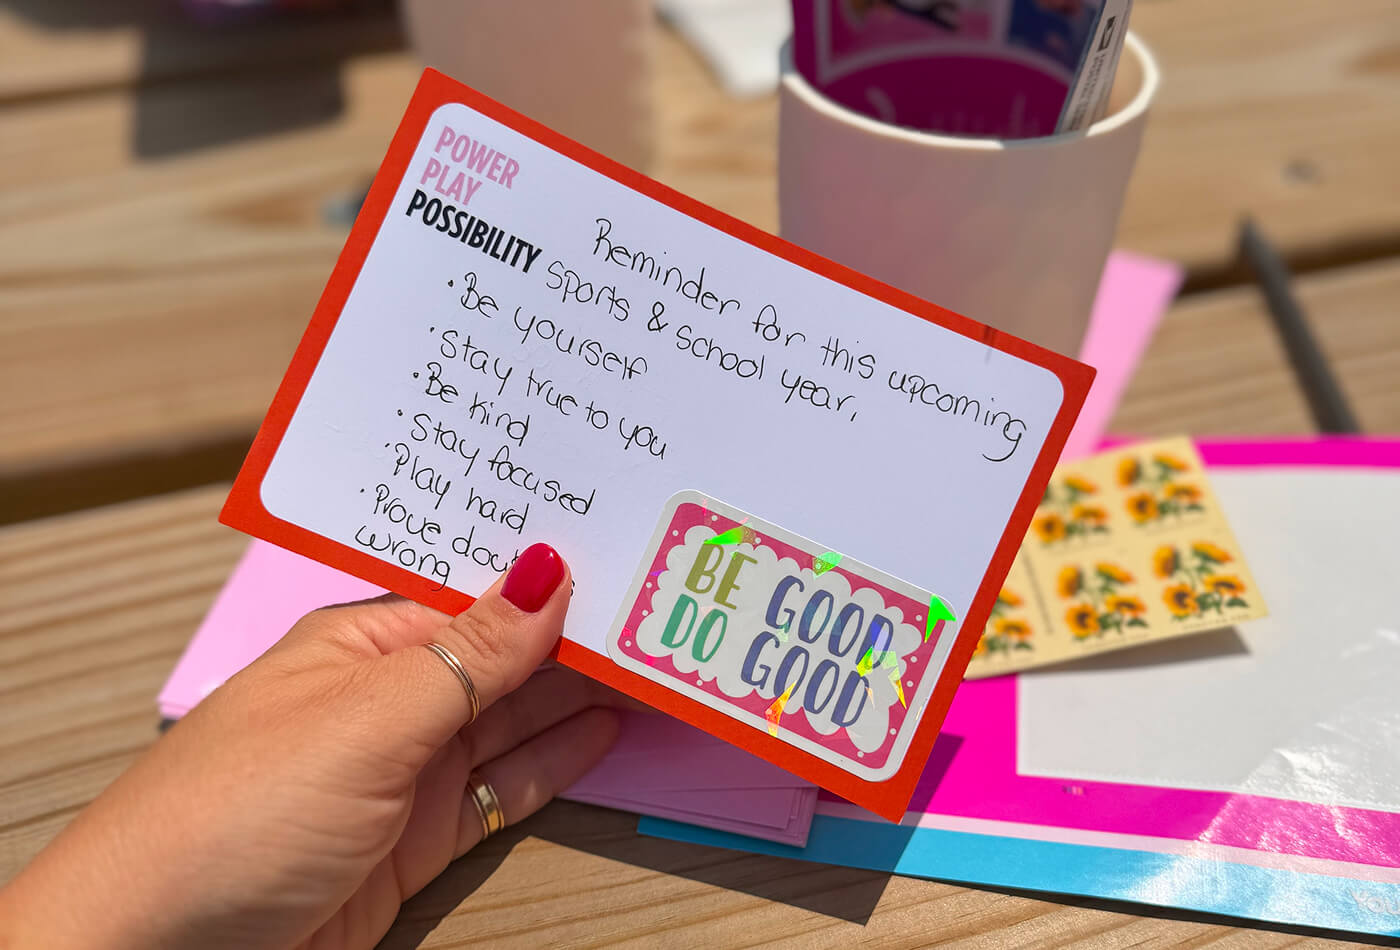 POWER
PLAY
POSSIBILITY
Reminder for this upcoming
sports & school year,
· Be yourself
· Stay true to you
· Be kind
· Stay focused
· Play hard
· Prove
wrong
BE GOOD
DO GOOD